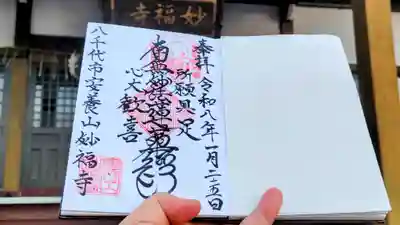 寺福妙
奉拝 令和八年一月二十五日
所願具足
南無妙法蓮華経
心大歓喜
八千代市安養山妙福寺